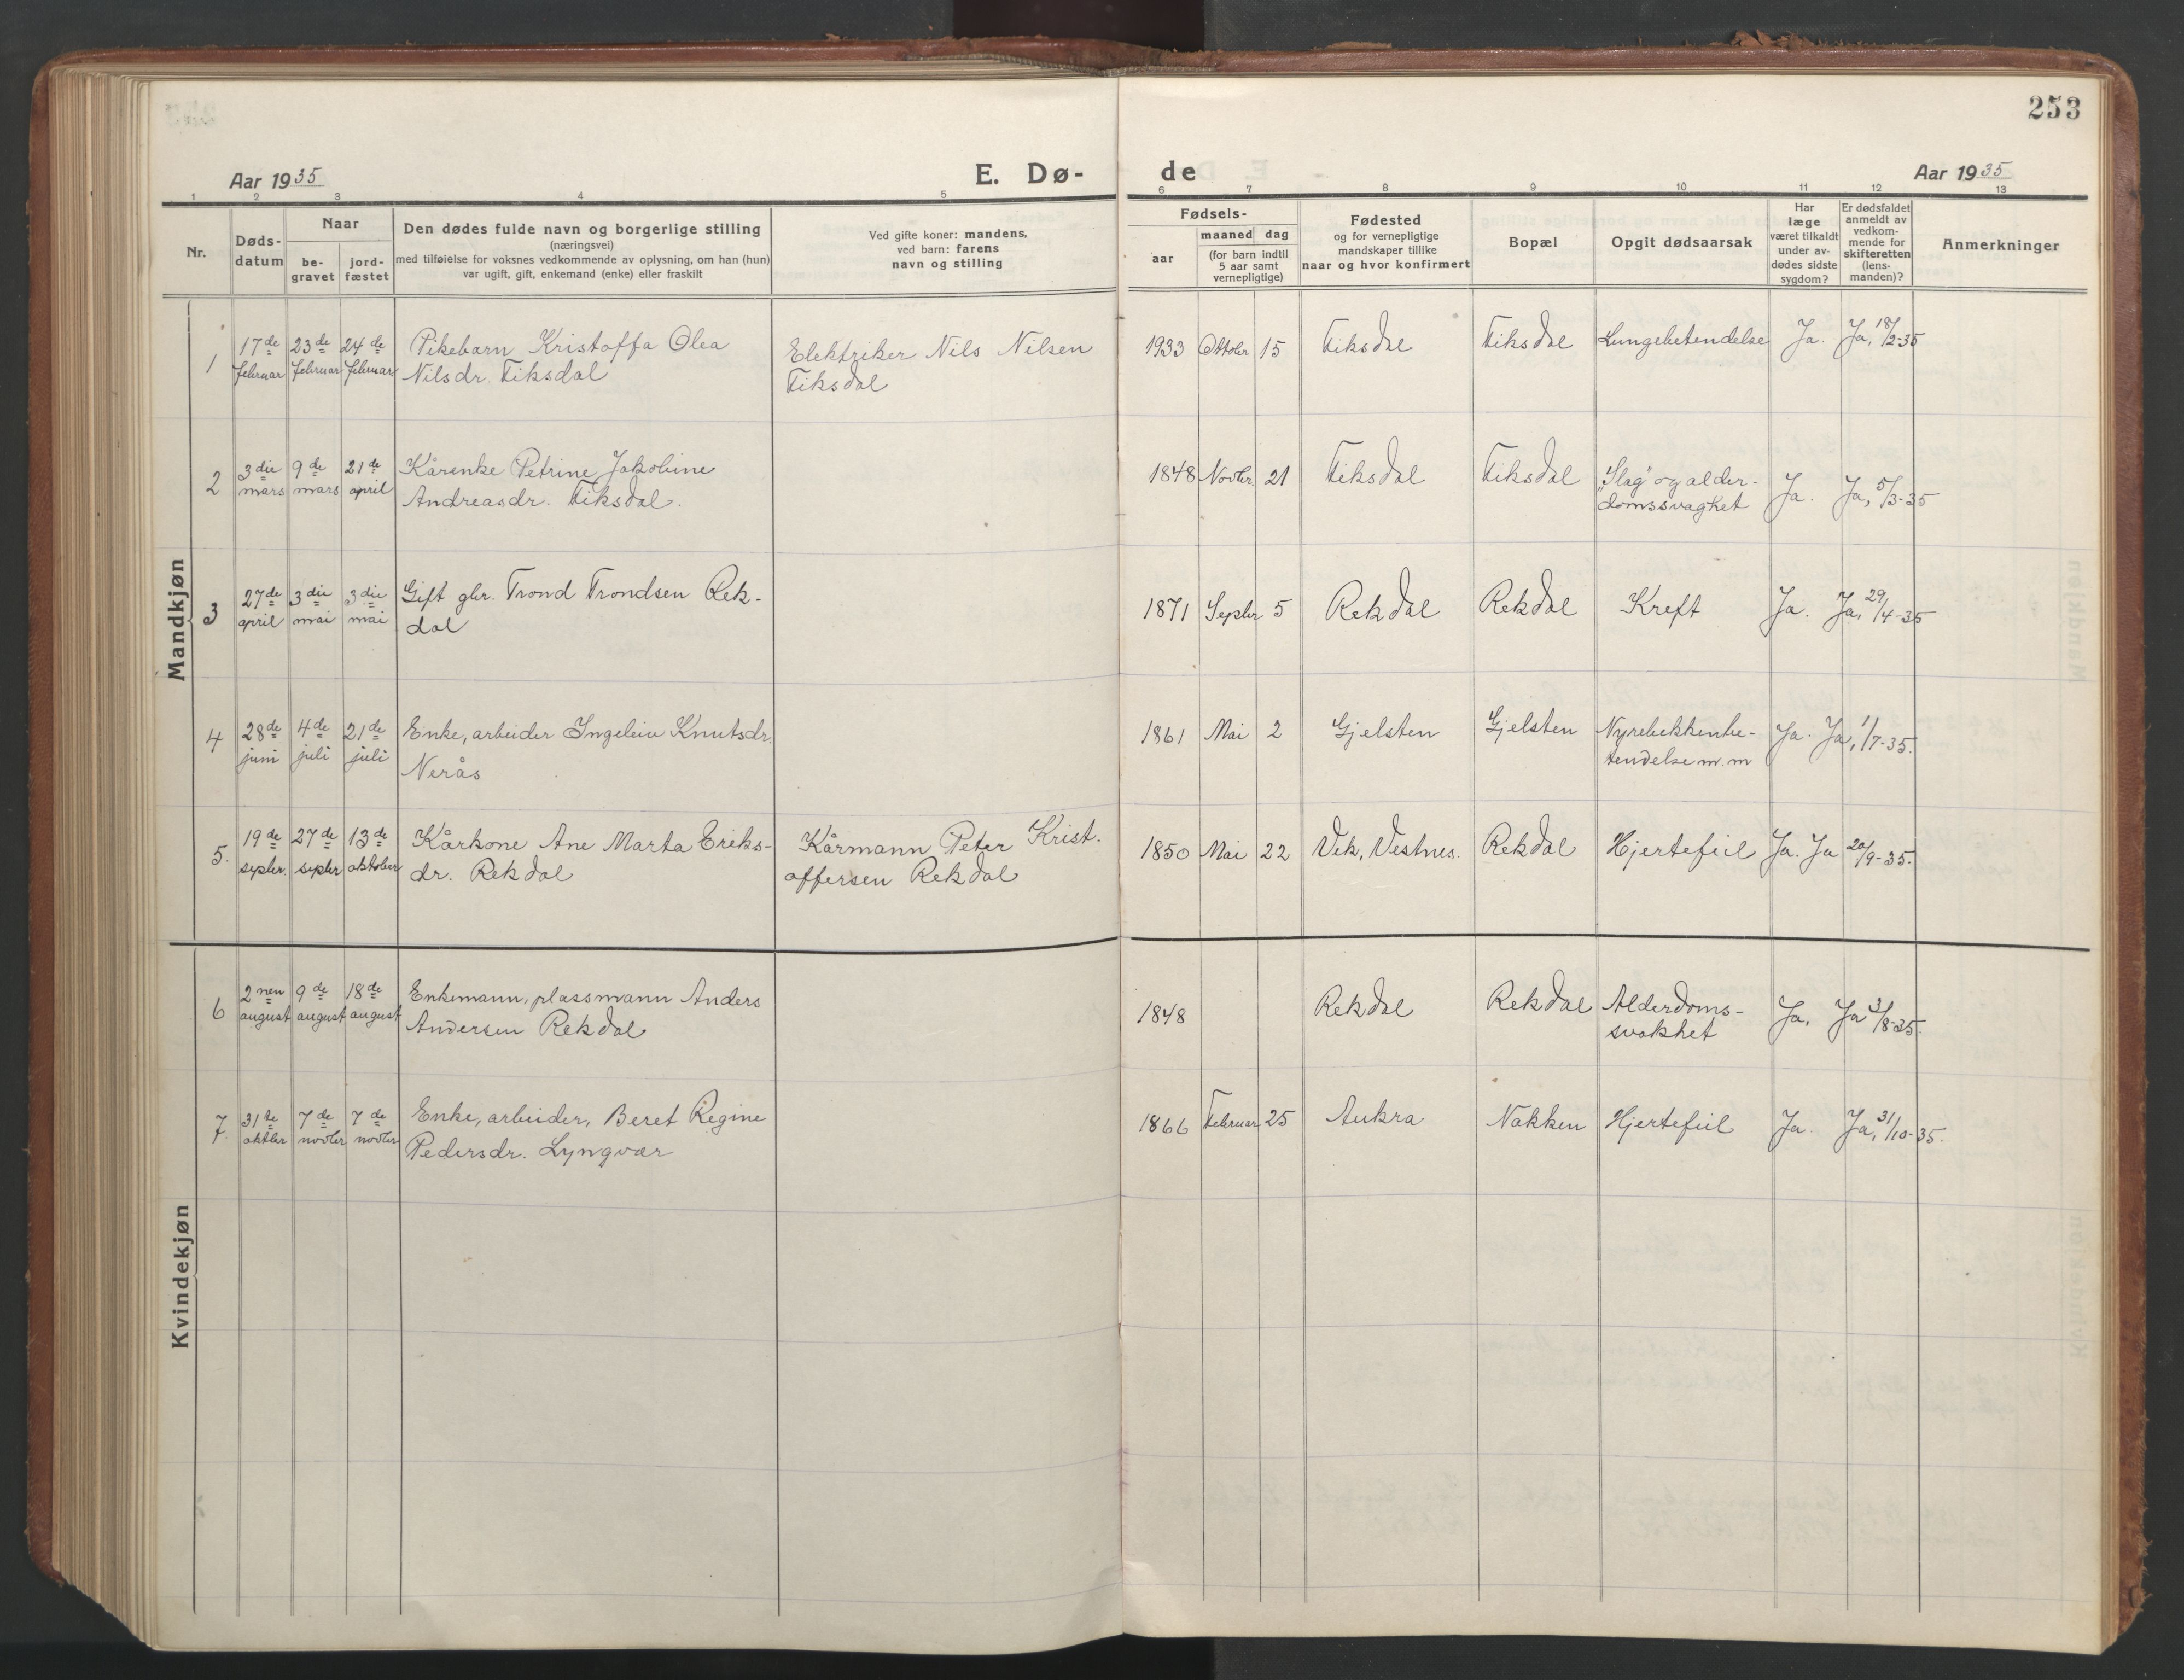 253
Aar 1935
E. Dø-
de
Aar 1935
1 2 3 4 5 6 7 8 9 10 11 12 13
Nr.
Døds-
datum
Naar
be-
gravet
jord-
fæstet
Den dødes fulde navn og borgerlige stilling
(næringsvei)
med tilføielse for voksnes vedkommende av oplysning, om han (hun)
var ugift, gift, enkemand (enke) eller fraskilt
Ved gifte koner: mandens,
ved barn: farens
navn og stilling
Fødsels-
aar
maaned dag
(for barn indtil
5 aar samt
vernepligtige)
Fødested
og for vernepligtige
mandskaper tillike
naar og hvor konfirmert
Bopæl
Opgit dødsaarsak
Har
læge
været tilkaldt
under av-
dødes sidste
sygdom?
Er dødsfaldet
anmeldt av
vedkom-
mende for
skifteretten
(lens-
manden)?
Anmerkninger
Mandkjøn
1
17de
februar
23de
februar
24de
februar
Pikebarn Kristoffa Olea
Nilsdr. Tiksdal
Elektriker Nils Nilsen
Tiksdal
1933 Oktobr 15
Tiksdal
Tiksdal
Lungebetendelse
Ja.
Ja, 18/2-35
2
3die
mars
9de
mars
21de
april
Kårenke Petrine Jakobine
Andreasdr. Tiksdal.
1848 Novbr. 21
Tiksdal
Tiksdal
"Slag" og alder-
domssvaghet
Ja.
Ja, 5/3-35
3
27de
april
3die
mai
3die
mai
Gift gbr. Trond Trondsen Rek-
dal
1871 Septbr 5
Rekdal
Rekdal
Kreft
Ja.
Ja, 29/4-35
4
28de
juni
4de
juli
21de
juli
Enke, arbeider Ingeleiv Knutsdr.
Nerås
1861 Mai 2
Gjelsten
Gjelsten
Nyrebekkenbe-
tendelse m.m
Ja.
Ja, 1/7-35.
5.
19de
septbr.
27de
septbr
13de
oktober
Kårkone Ane Marta Eriks-
dr. Rekdal
Kårmann Peter Krist-
offersen Rekdal
1850 Mai 22
Vik, Vestnes.
Rekdal
Hjertefeil
Ja.
Ja 20/9-35.
Kvindekjøn
6
2nen
august
9de
august
18de
august
Enkemann, plassmann Anders
Andersen Rekdal
1848
Rekdal
Rekdal
Alderdoms-
svakhet
Ja,
Ja 3/8-35.
7.
31te
oktbr
7de
novbr
7de
novbr
Enke, arbeider, Beret Regine
Pedersdr. Lyngvær
1866 Februar 25
Aukra
Nakken
Hjertefeil
Ja.
Ja, 31/10-35.